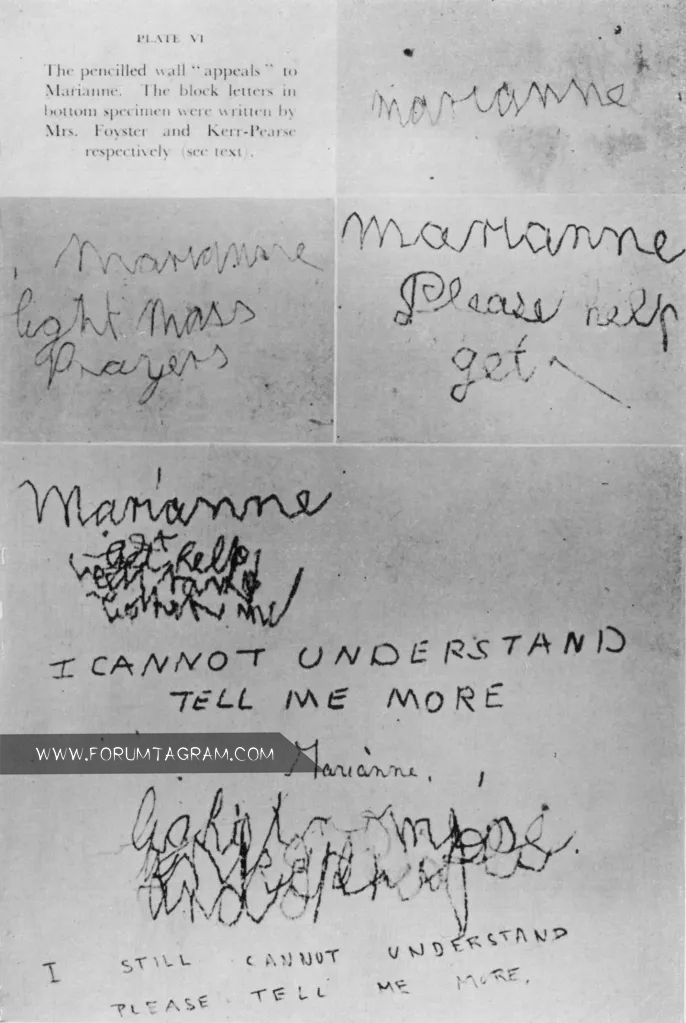 PLATE VI
The pencilled wall "appeals" to
Marianne. The block letters in
bottom specimen were written by
Mrs. Foyster and Kerr-Pearse
respectively (see text).
marianne
Marianne
light Mass
Prayers
Marianne
Please help
get
Marianne
get help
me
I CANNOT UNDERSTAND
TELL ME MORE
WWW.FORUMTAGRAM.COM
Marianne.
I STILL CANNOT UNDERSTAND
PLEASE TELL ME MORE.